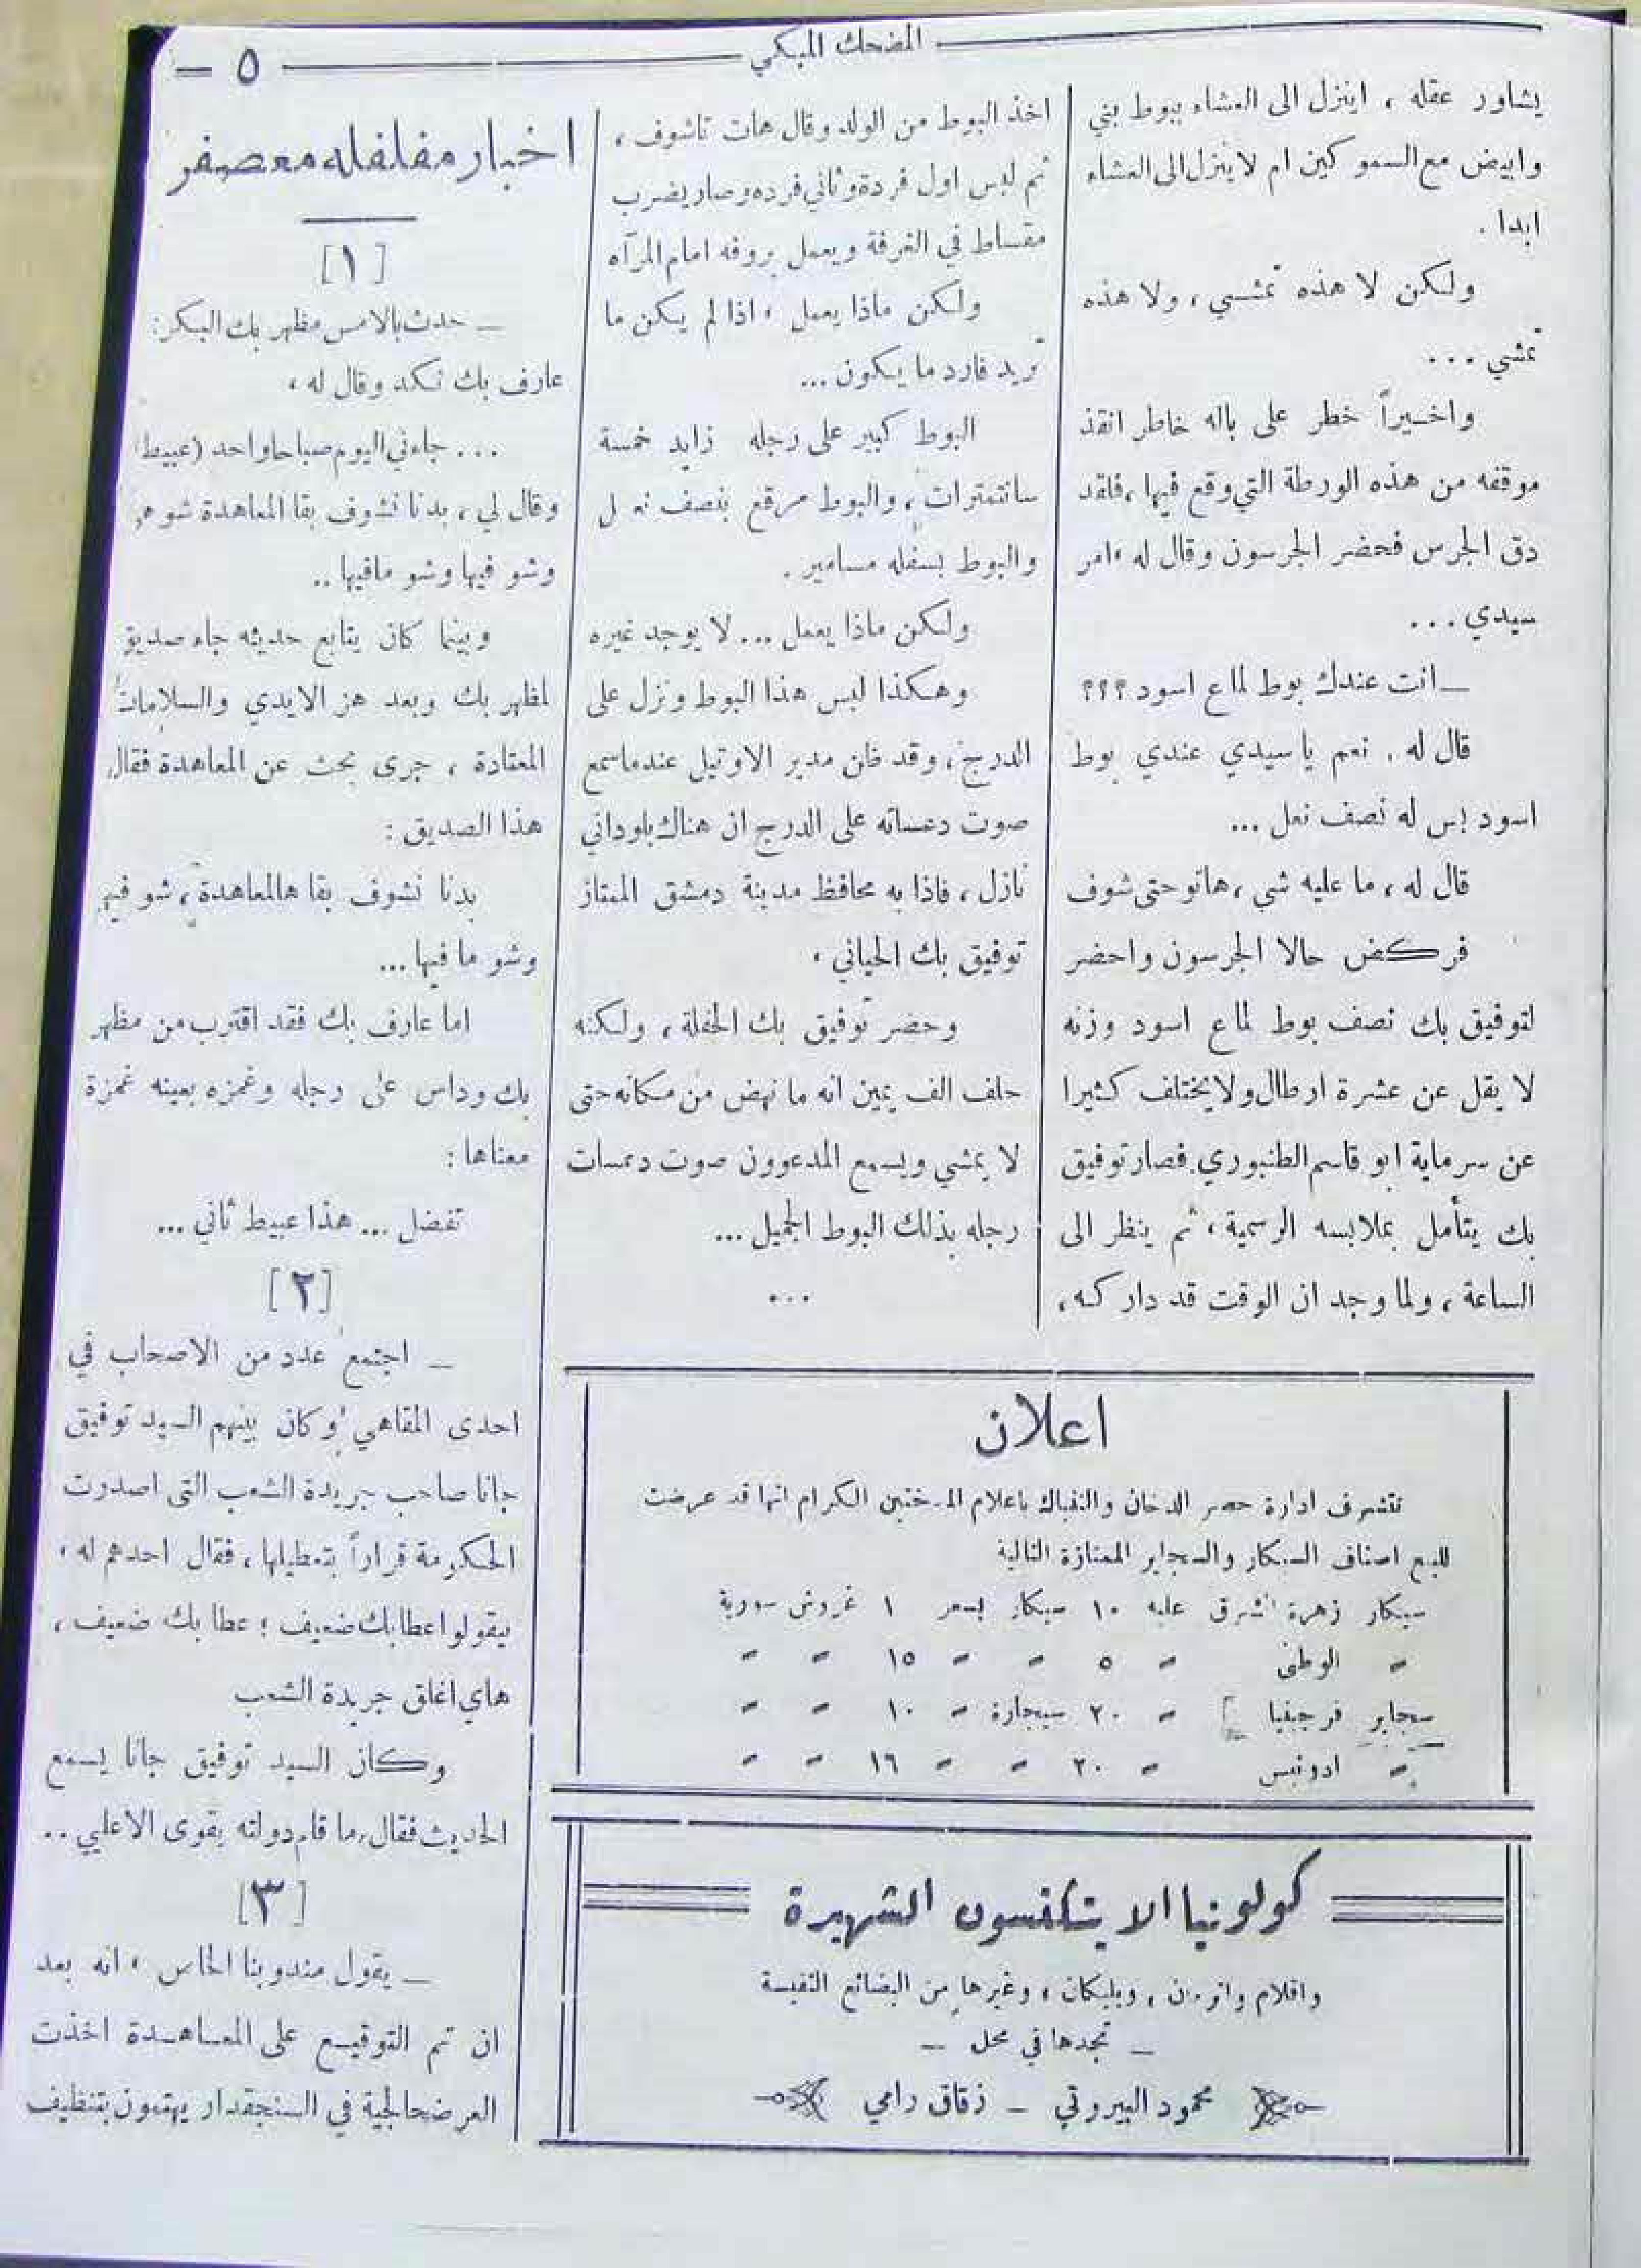 المضحك المبكي
— ٥ —
يشاور عقله ، اينزل الى العشاء ببوط بني
وابيض مع السموكين ام لا ينزل الى العشاء
ابدا .
ولكن لا هذه تمشي ، ولا هذه
تمشي ...
واخيراً خطر على باله خاطر انقذ
موقفه من هذه الورطة التي وقع فيها ، فلقد
دق الجرس فحضر الجرسون وقال له ، امر
سيدي ...
— انت عندك بوط لماع اسود ؟؟؟
قال له . نعم يا سيدي عندي بوط
اسود بس له نصف نعل ...
قال له ، ما عليه شي ، هاتو حتى شوف
فركض حالا الجرسون واحضر
لتوفيق بك نصف بوط لماع اسود وزنه
لا يقل عن عشرة ارطال ولا يختلف كثيرا
عن سرماية ابو قاسم الطنبوري . فصار توفيق
بك يتأمل بملابسه الرسمية ، ثم ينظر الى
الساعة ، ولما وجد ان الوقت قد داركه ،
اخذ البوط من الولد وقال هات تاشوف ،
ثم لبس اول فردة وثاني فرده وصار يضرب
مقساط في الغرفة ويعمل بروفه امام المرآه
ولكن ماذا يعمل ، اذا لم يكن ما
تريد فارد ما يكون ...
البوط كبير على رجله زايد خمسة
سانتمترات ، والبوط مرقع بنصف نعل
والبوط بسفله مسامير .
ولكن ماذا يعمل ... لا يوجد غيره
وهكذا لبس هذا البوط ونزل على
الدرج ، وقد ظن مدير الاوتيل عندما سمع
صوت دعساته على الدرج ان هناك بلوداني
نازل ، فاذا به محافظ مدينة دمشق الممتاز
توفيق بك الحياني ،
وحضر توفيق بك الحفلة ، ولكنه
حلف الف يمين انه ما نهض من مكانه حتى
لا يمشي ويسمع المدعوون صوت دعسات
رجله بذلك البوط الجميل ...
...
اخبار مفلفله معصفر
[١]
— حدث بالامس مظهر بك البكر:
عارف بك نكد وقال له ،
... جاءني اليوم صباحا واحد (عبيط)
وقال لي ، بدنا نشوف بقا المعاهدة شو هي
وشو فيها وشو مافيها ..
وبينما كان يتابع حديثه جاء صديق
لمظهر بك وبعد هز الايدي والسلامات
المعتادة ، جرى بحث عن المعاهدة فقال
هذا الصديق :
بدنا نشوف بقا هالمعاهدة ، شو فيها
وشو ما فيها ...
اما عارف بك فقد اقترب من مظهر
بك وداس على رجله وغمزه بعينه غمزة
معناها :
تفضل ... هذا عبيط ثاني ...
[٢]
— اجتمع عدد من الاصحاب في
احدى المقاهي ، وكان بينهم السيد توفيق
جانا صاحب جريدة الشعب التي اصدرت
الحكومة قراراً بتعطيلها ، فقال احدهم له ،
بيقولوا عطا بك ضعيف ؛ عطا بك ضعيف ،
هاي اغلق جريدة الشعب
وكان السيد توفيق جانا يسمع
الحديث فقال ، ما قام دولته يقوى الا علي ..
[٣]
— يقول مندوبنا الخاس ، انه بعد
ان تم التوقيع على المعاهدة اخذت
العرضحالجية في السنجقدار يهتمون بتنظيف
اعلان
تتشرف ادارة حصر الدخان والتنباك باعلام المدخنين الكرام انها قد عرضت
للبيع اصناف السيكار والسجاير الممتازة التالية
سيكار زهرة الشرق علبه ١٠ سيكار بسعر ١ غروش سورية
〃 الوطني 〃 ٥ 〃 〃 ١٥ 〃 〃
سجاير فرجينيا 〃 ٢٠ سيجارة 〃 ١٠ 〃 〃
〃 ادونيس 〃 ٢٠ 〃 〃 ١٦ 〃 〃
كولونيا الايتكفسون الشهيرة
واقلام واترمن ، وبليكان ، وغيرها من البضائع النفيسة
— تجدها في محل —
محمود البيروتي — زقاق رامي